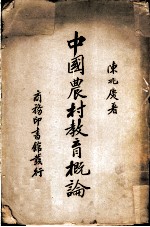 陳兆慶著
中國農村教育概論
商務印書館發行